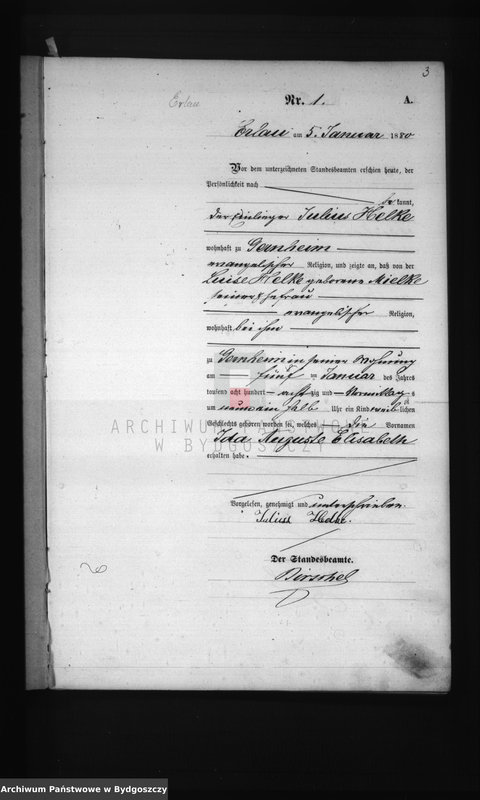 3
Erlau
Nr. 1.
A.
Erlau am 5. Januar 1880
Vor dem unterzeichneten Standesbeamten erschien heute, der
Persönlichkeit nach
be kannt,
der Einlieger Julius Helke
wohnhaft zu Gernheim
evangelischer Religion, und zeigte an, daß von der
Luise Helke geborene Mielke
seiner Ehefrau
evangelischer Religion,
wohnhaft bei ihm
zu Gernheim in seiner Wohnung
am fünf ten Januar des Jahres
tausend acht hundert acht zig und Vormittags
um neun ein halb Uhr ein Kind weiblichen
Geschlechts geboren worden sei, welches die Vornamen
Ida Auguste Elisabeth
erhalten habe.
Vorgelesen, genehmigt und unterschrieben.
Julius Helke.
Der Standesbeamte.
ARCHIWUM PAŃSTWOWE
W BYDGOSZCZY
Archiwum Państwowe w Bydgoszczy